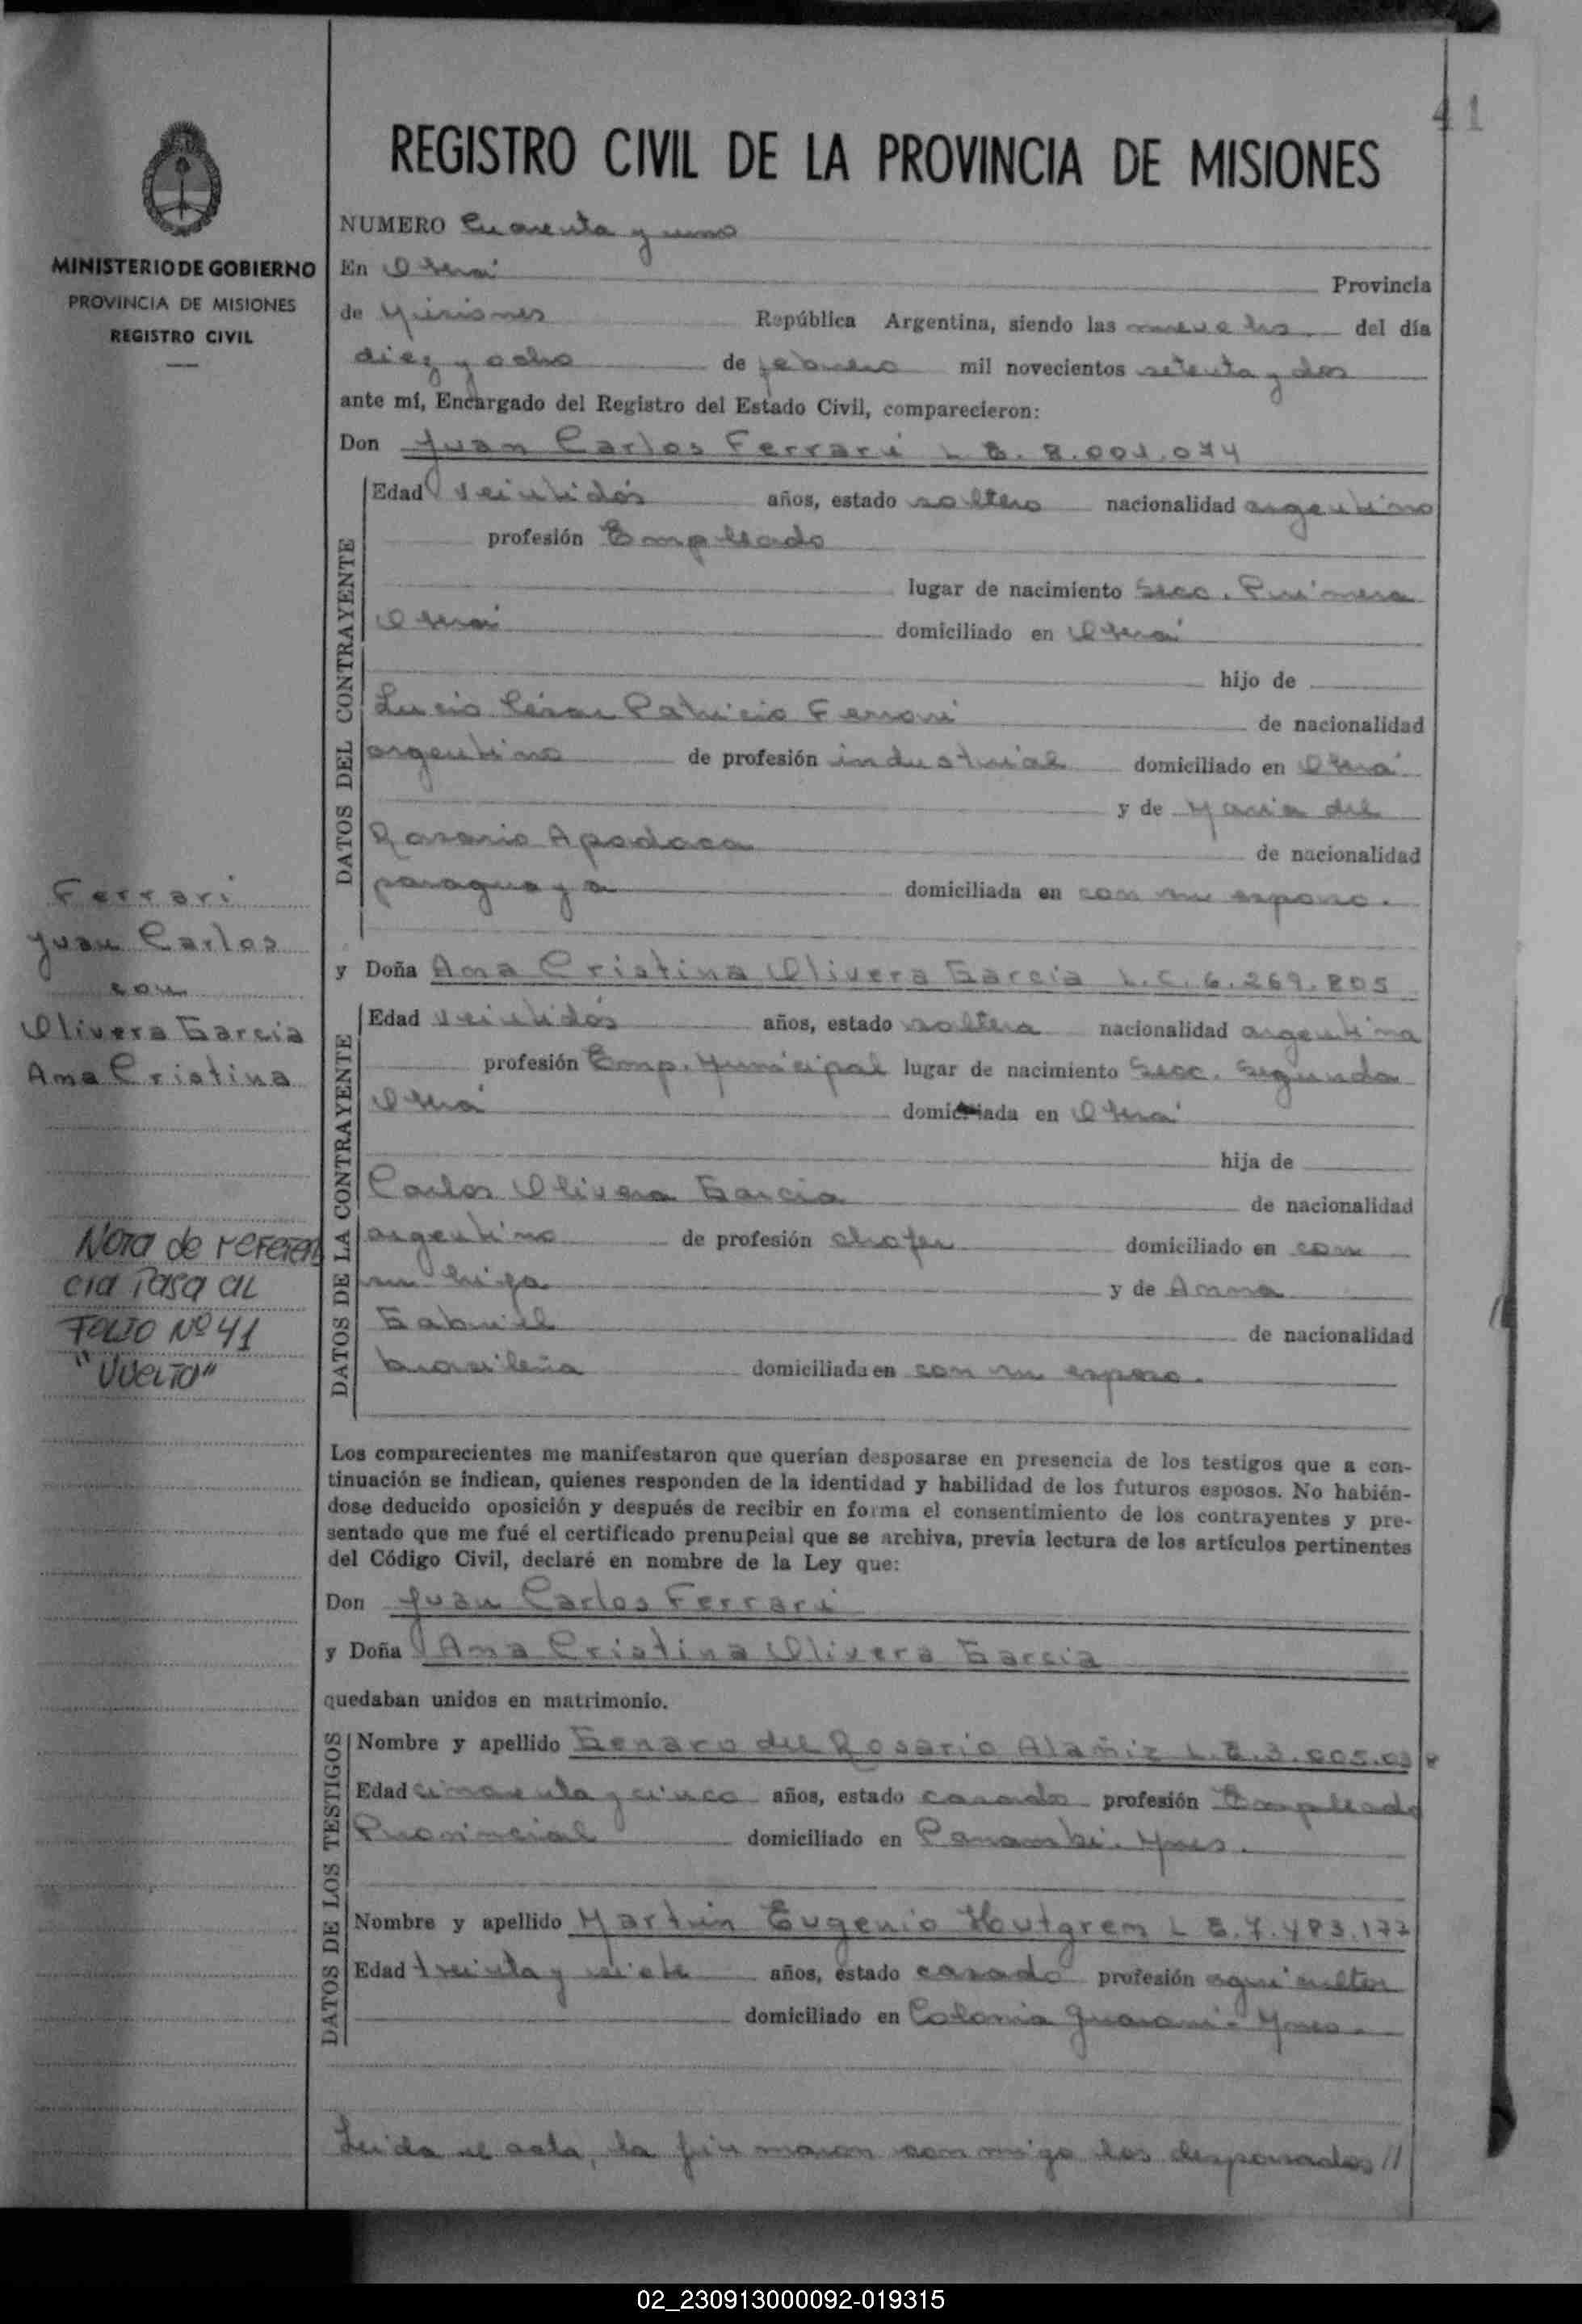 41
REGISTRO CIVIL DE LA PROVINCIA DE MISIONES
MINISTERIO DE GOBIERNO
PROVINCIA DE MISIONES
REGISTRO CIVIL
NUMERO Cuarenta y uno
En Oberá Provincia
de Misiones República Argentina, siendo las nueve hs. del día
diez y ocho de febrero mil novecientos setenta y dos
ante mí, Encargado del Registro del Estado Civil, comparecieron:
Don Juan Carlos Ferrari L E. 8.001.074
DATOS DEL CONTRAYENTE
Edad veintidós años, estado soltero nacionalidad argentino
profesión Empleado
lugar de nacimiento Secc. Primera
Oberá domiciliado en Oberá
hijo de
Lucio César Patricio Ferrari de nacionalidad
argentino de profesión industrial domiciliado en Oberá
y de María del
Rosario Apodaca de nacionalidad
paraguaya domiciliada en con su esposo.
Ferrari
Juan Carlos
con
Olivera Garcia
Ana Cristina
Nota de referen
cia Pasa al
Folio Nº 41
"Vuelto"
y Doña Ana Cristina Olivera Garcia L.C. 6.269.805
DATOS DE LA CONTRAYENTE
Edad veintidós años, estado soltera nacionalidad argentina
profesión Emp. Municipal lugar de nacimiento Secc. Segunda
Oberá domiciliada en Oberá
hija de
Carlos Olivera Garcia de nacionalidad
argentino de profesión chofer domiciliado en con
su hija y de Anna
Gabriel de nacionalidad
brasileña domiciliada en con su esposo.
Los comparecientes me manifestaron que querían desposarse en presencia de los testigos que a con-
tinuación se indican, quienes responden de la identidad y habilidad de los futuros esposos. No habién-
dose deducido oposición y después de recibir en forma el consentimiento de los contrayentes y pre-
sentado que me fué el certificado prenupcial que se archiva, previa lectura de los artículos pertinentes
del Código Civil, declaré en nombre de la Ley que:
Don Juan Carlos Ferrari
y Doña Ana Cristina Olivera Garcia
quedaban unidos en matrimonio.
DATOS DE LOS TESTIGOS
Nombre y apellido Genaro del Rosario Alañiz L.E.3.
Edad cincuenta y cinco años, estado casado profesión Empleado
Provincial domiciliado en Panambí. Mnes.
Nombre y apellido Martin Eugenio Hultgren L E. 7.483.177
Edad treinta y siete años, estado casado profesión agricultor
domiciliado en Colonia Guarani - Mnes.
Leida el acta, la firmaron conmigo los desposados //
02_230913000092-019315